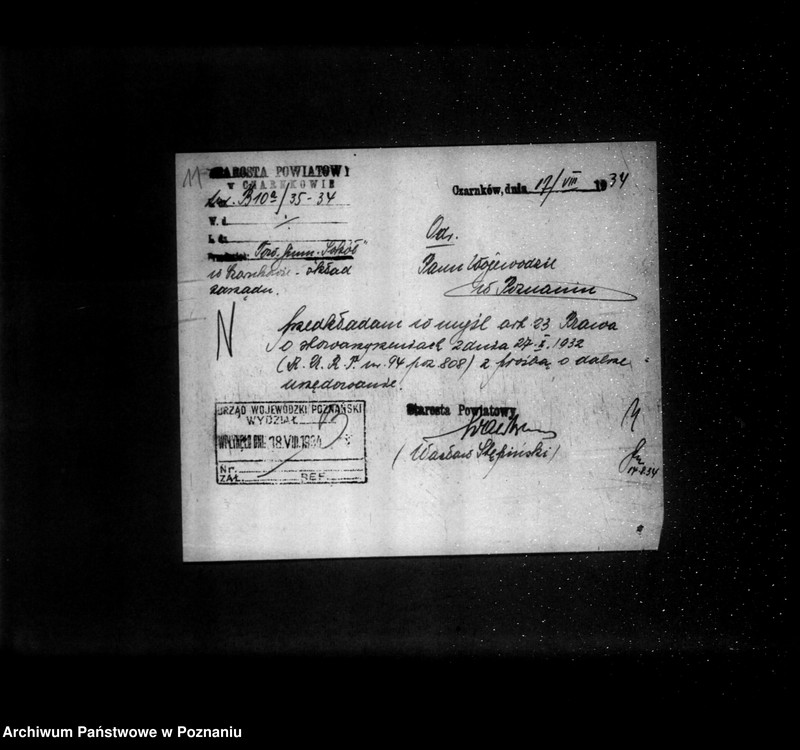 STAROSTA POWIATOWY
W CZARNKOWIE
B10a/35-34
W. d.
L. dz.
Przedmiot: Tow. Gimn. „Sokół”
w Czarnkowie - skład
zarządu.
Czarnków, dnia 17/VIII 1934
Odr.
Panu Wojewodzie
w Poznaniu
N
przedkładam w myśl art. 23 Prawa
o stowarzyszeniach z dnia 27.X.1932
(R.P. nr. 94 poz 808) z prośbą o dalsze
urzędowanie.
URZĄD WOJEWÓDZKI POZNAŃSKI
WYDZIAŁ
WPŁYNĘŁO DNIA 18.VIII.1934
Nr.
ZAŁ. REF.
Starosta Powiatowy
(Wacław Stępiński)
Archiwum Państwowe w Poznaniu